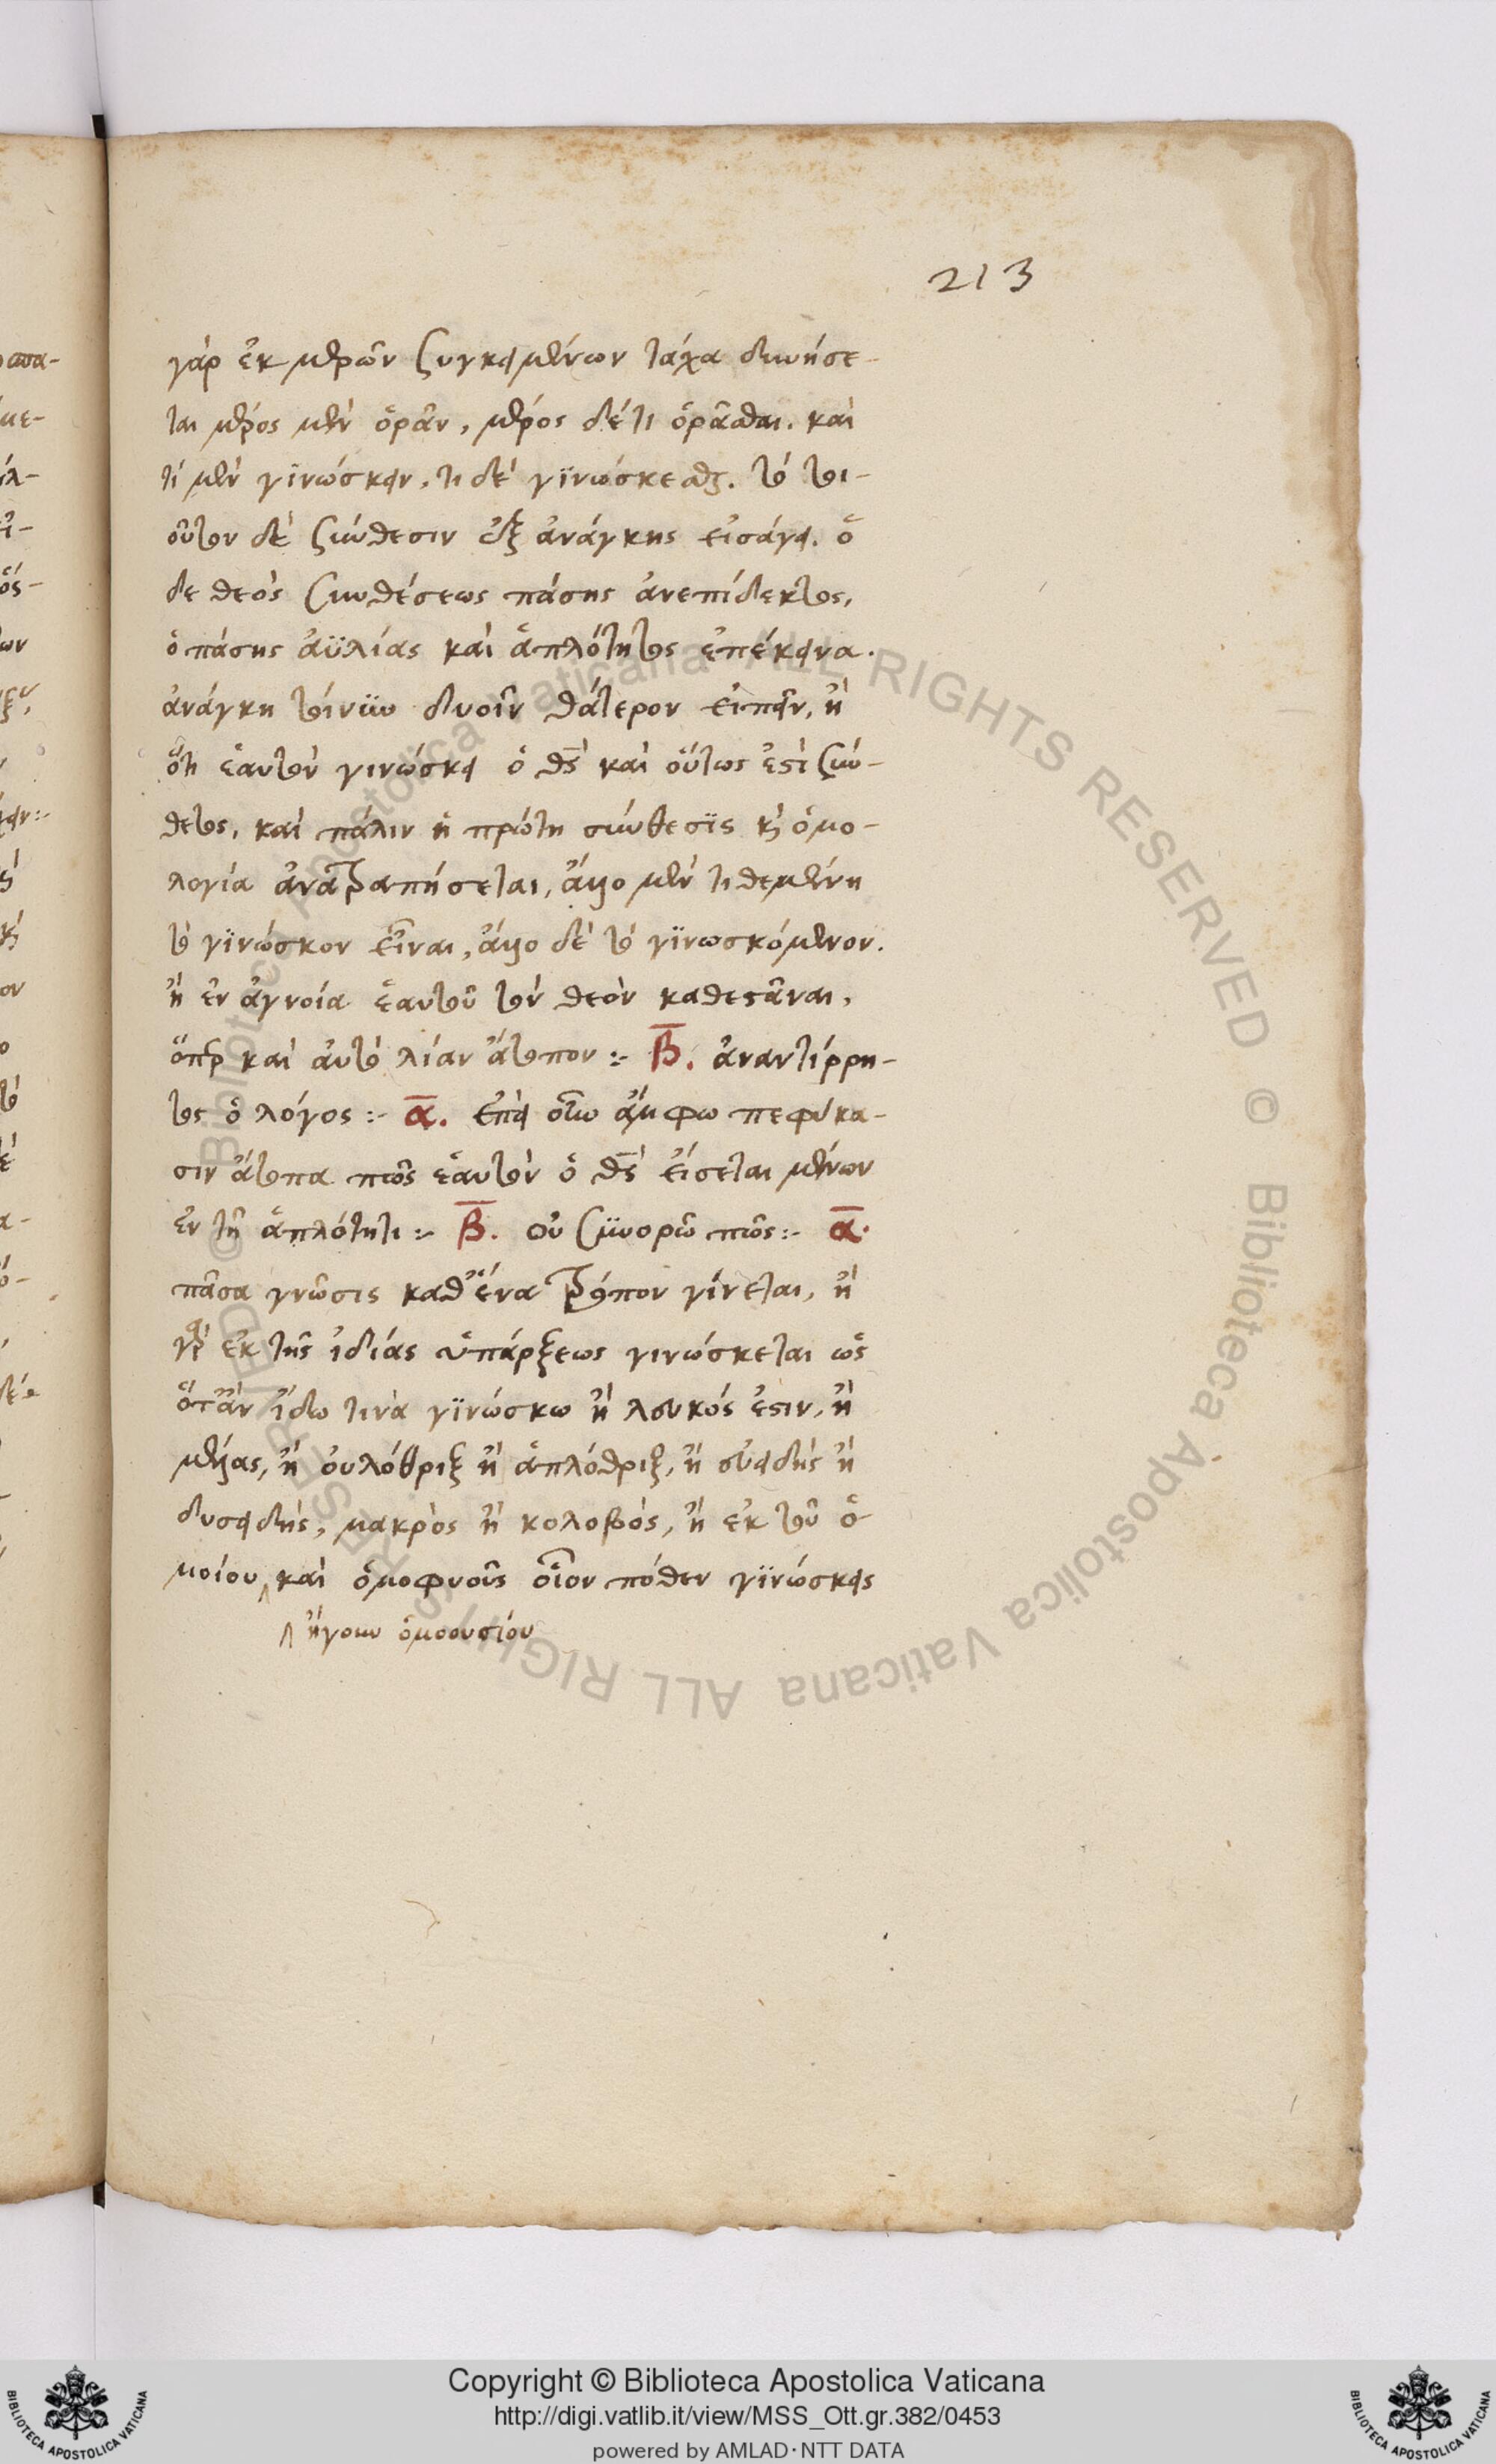 213
γὰρ ἐκ μερῶν συγκειμένων τάχα δυνήσε-
ται μέρος μὲν ὁρᾶν, μέρος δέ τι ὁρᾶσθαι. καὶ
τί μὲν γϊνώσκειν, τι δὲ γϊνώσκεσθαι. τὸ τοι-
οῦτον δὲ σύνθεσιν ἐξ ἀνάγκης εἰσάγει. ὁ
δε θεὸς συνθέσεως πάσης ἀνεπίδεκτος,
ὁ πάσης ἀϋλίας καὶ ἁπλότητος ἐπέκεινα.
ἀνάγκη τοίνϋν δυοῖν θάτερον εἰπεῖν, ἢ
ὅτι ἑαυτὸν γινώσκει ὁ θς καὶ οὕτως ἐστὶ σύν-
θετος, καὶ πάλιν ἡ πρώτη σύνθεσϊς κ ὁμο-
λογία ἀνατραπήσεται, ἄλλο μὲν τιθεμένη
τὸ γϊνώσκον εἶναι, ἄλλο δὲ τὸ γϊνωσκόμενον.
ἢ ἐν ἀγνοία ἑαυτοῦ τὸν θεὸν καθεστᾶναι,
ὅπερ καὶ ἀυτὸ λίαν ἄτοπον :- Β. ἀναντίρρη-
τος ὁ λόγος :- α. ἐπεὶ οὖν ἄμφω πεφύκα-
σιν ἄτοπα πῶς ἑαυτὸν ὁ θς εἴσεται μένων
ἐν τῇ ἁπλότητι :- Β. οὐ συνορῶ πῶς :- α.
πᾶσα γνῶσις καθ' ἕνα τρόπον γίνεται, ἢ
γὰρ ἐκ τῆς ἰδιάς ὑπάρξεως γινώσκεται ὡς
ὅτἂν ἴδω τινὰ γϊνώσκω ἢ λευκός ἐστιν, ἢ
μέλας, ἢ οὐλόθριξ ἢ ἁπλόθριξ, ἢ εὐειδὴς ἢ
δυσειδὴς, μακρὸς ἢ κολοβὸς, ἢ ἐκ τοῦ ὁ-
μοίου καὶ ὁμοφυοῦς οἷον πόθεν γϊνώσκεις
ἤγουν ὁμοουσίου
Copyright © Biblioteca Apostolica Vaticana
http://digi.vatlib.it/view/MSS_Ott.gr.382/0453
powered by AMLAD·NTT DATA